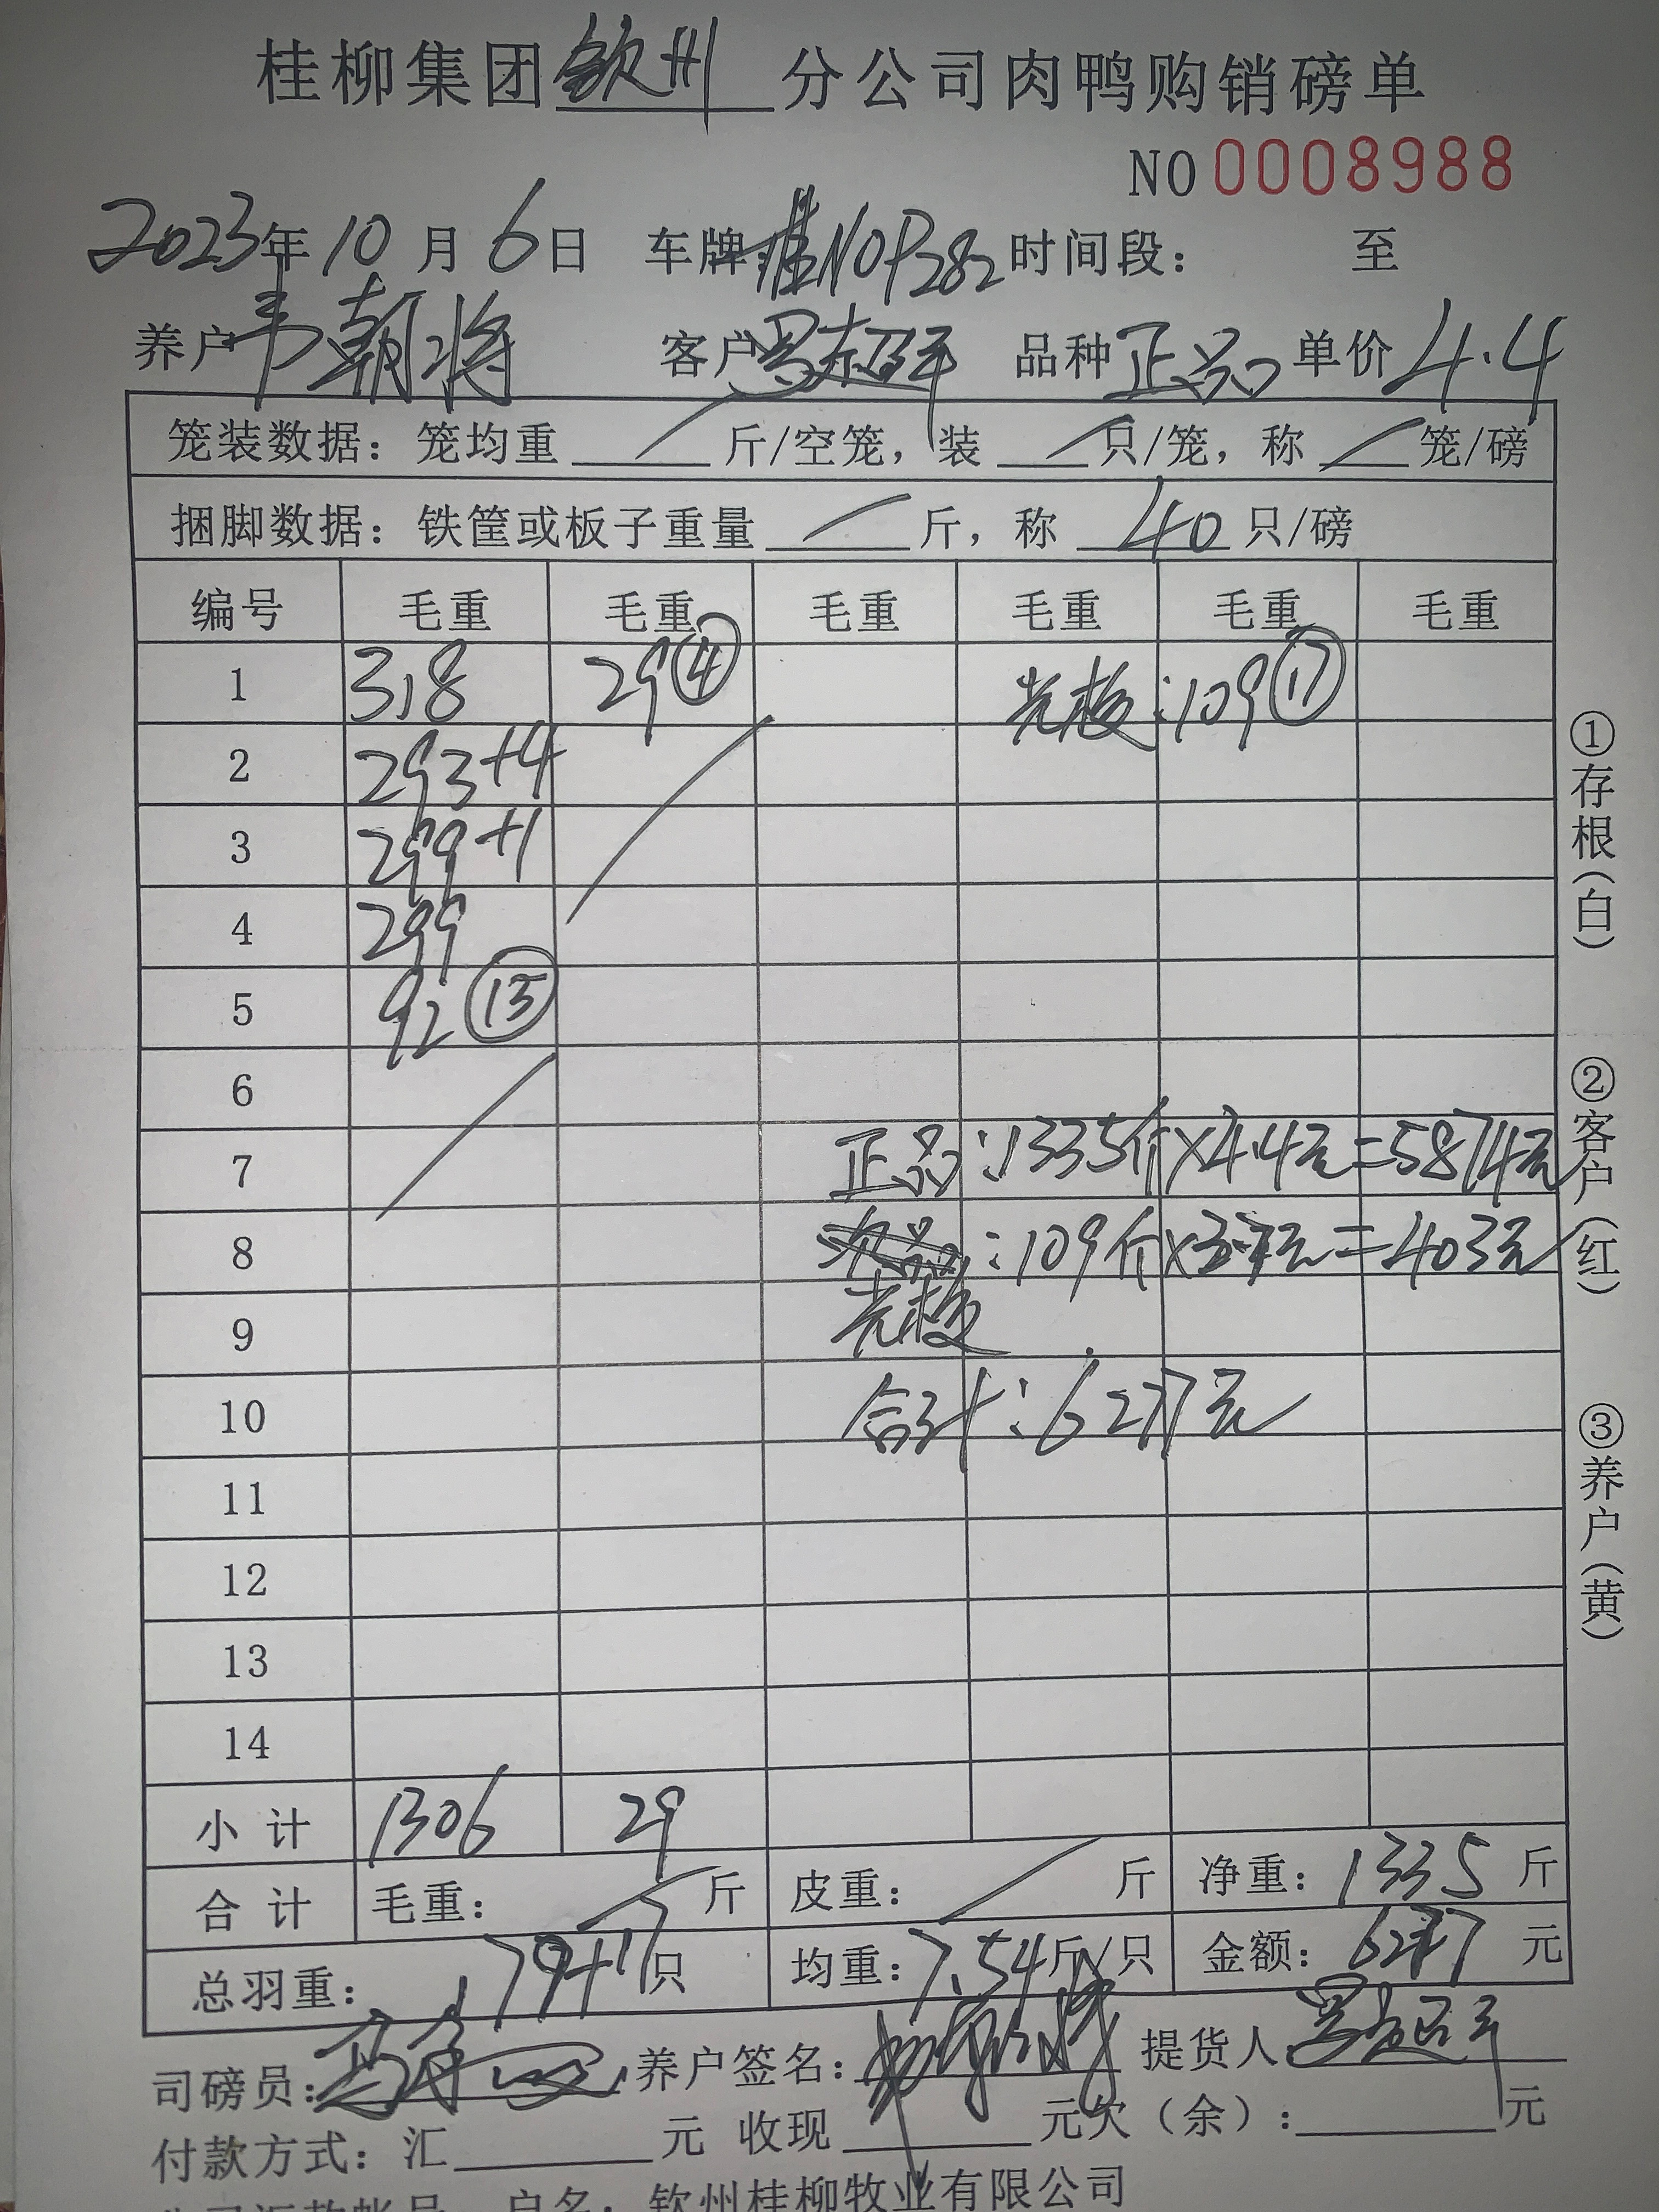 桂柳集团钦州分公司肉鸭购销磅单
NO 0008988
2023年10月6日 车牌:桂N0P282 时间段: 至
养户韦朝将 客户罗超平 品种正品 单价4.4
笼装数据: 笼均重 / 斤/空笼, 装 / 只/笼, 称 / 笼/磅
捆脚数据: 铁筐或板子重量 / 斤, 称 40 只/磅
编号 毛重 毛重 毛重 毛重 毛重 毛重
1 318 29④ 光板:109⑰
2 293+4
3 299+1
4 299
5 92⑬
6
7 正品:1335斤×4.4元=5874元
8 :109斤×3.7元=403元
9 光板
10 合计:6277元
11
12
13
14
小计 1306 29
合计 毛重: / 斤 皮重: / 斤 净重: 1335 斤
总羽重: 179+17只 均重: 7.54斤/只 金额: 6277 元
司磅员: 养户签名: 提货人 罗超平
付款方式: 汇 元 收现 元欠(余): 元
户名: 钦州桂柳牧业有限公司
①存根(白)
②客户(红)
③养户(黄)